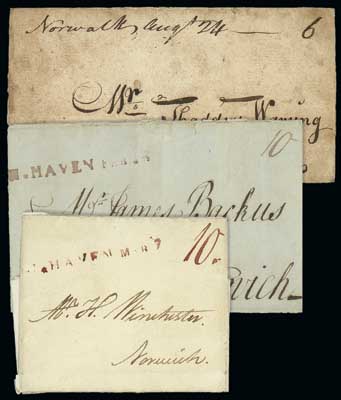 Norwalk Augt 24 — 6
Mr Thaddeus Waring
HAVEN 10
Mr James Backus
wich
HAVEN Mar 7 10
Mr H. Winchester.
Norwich.